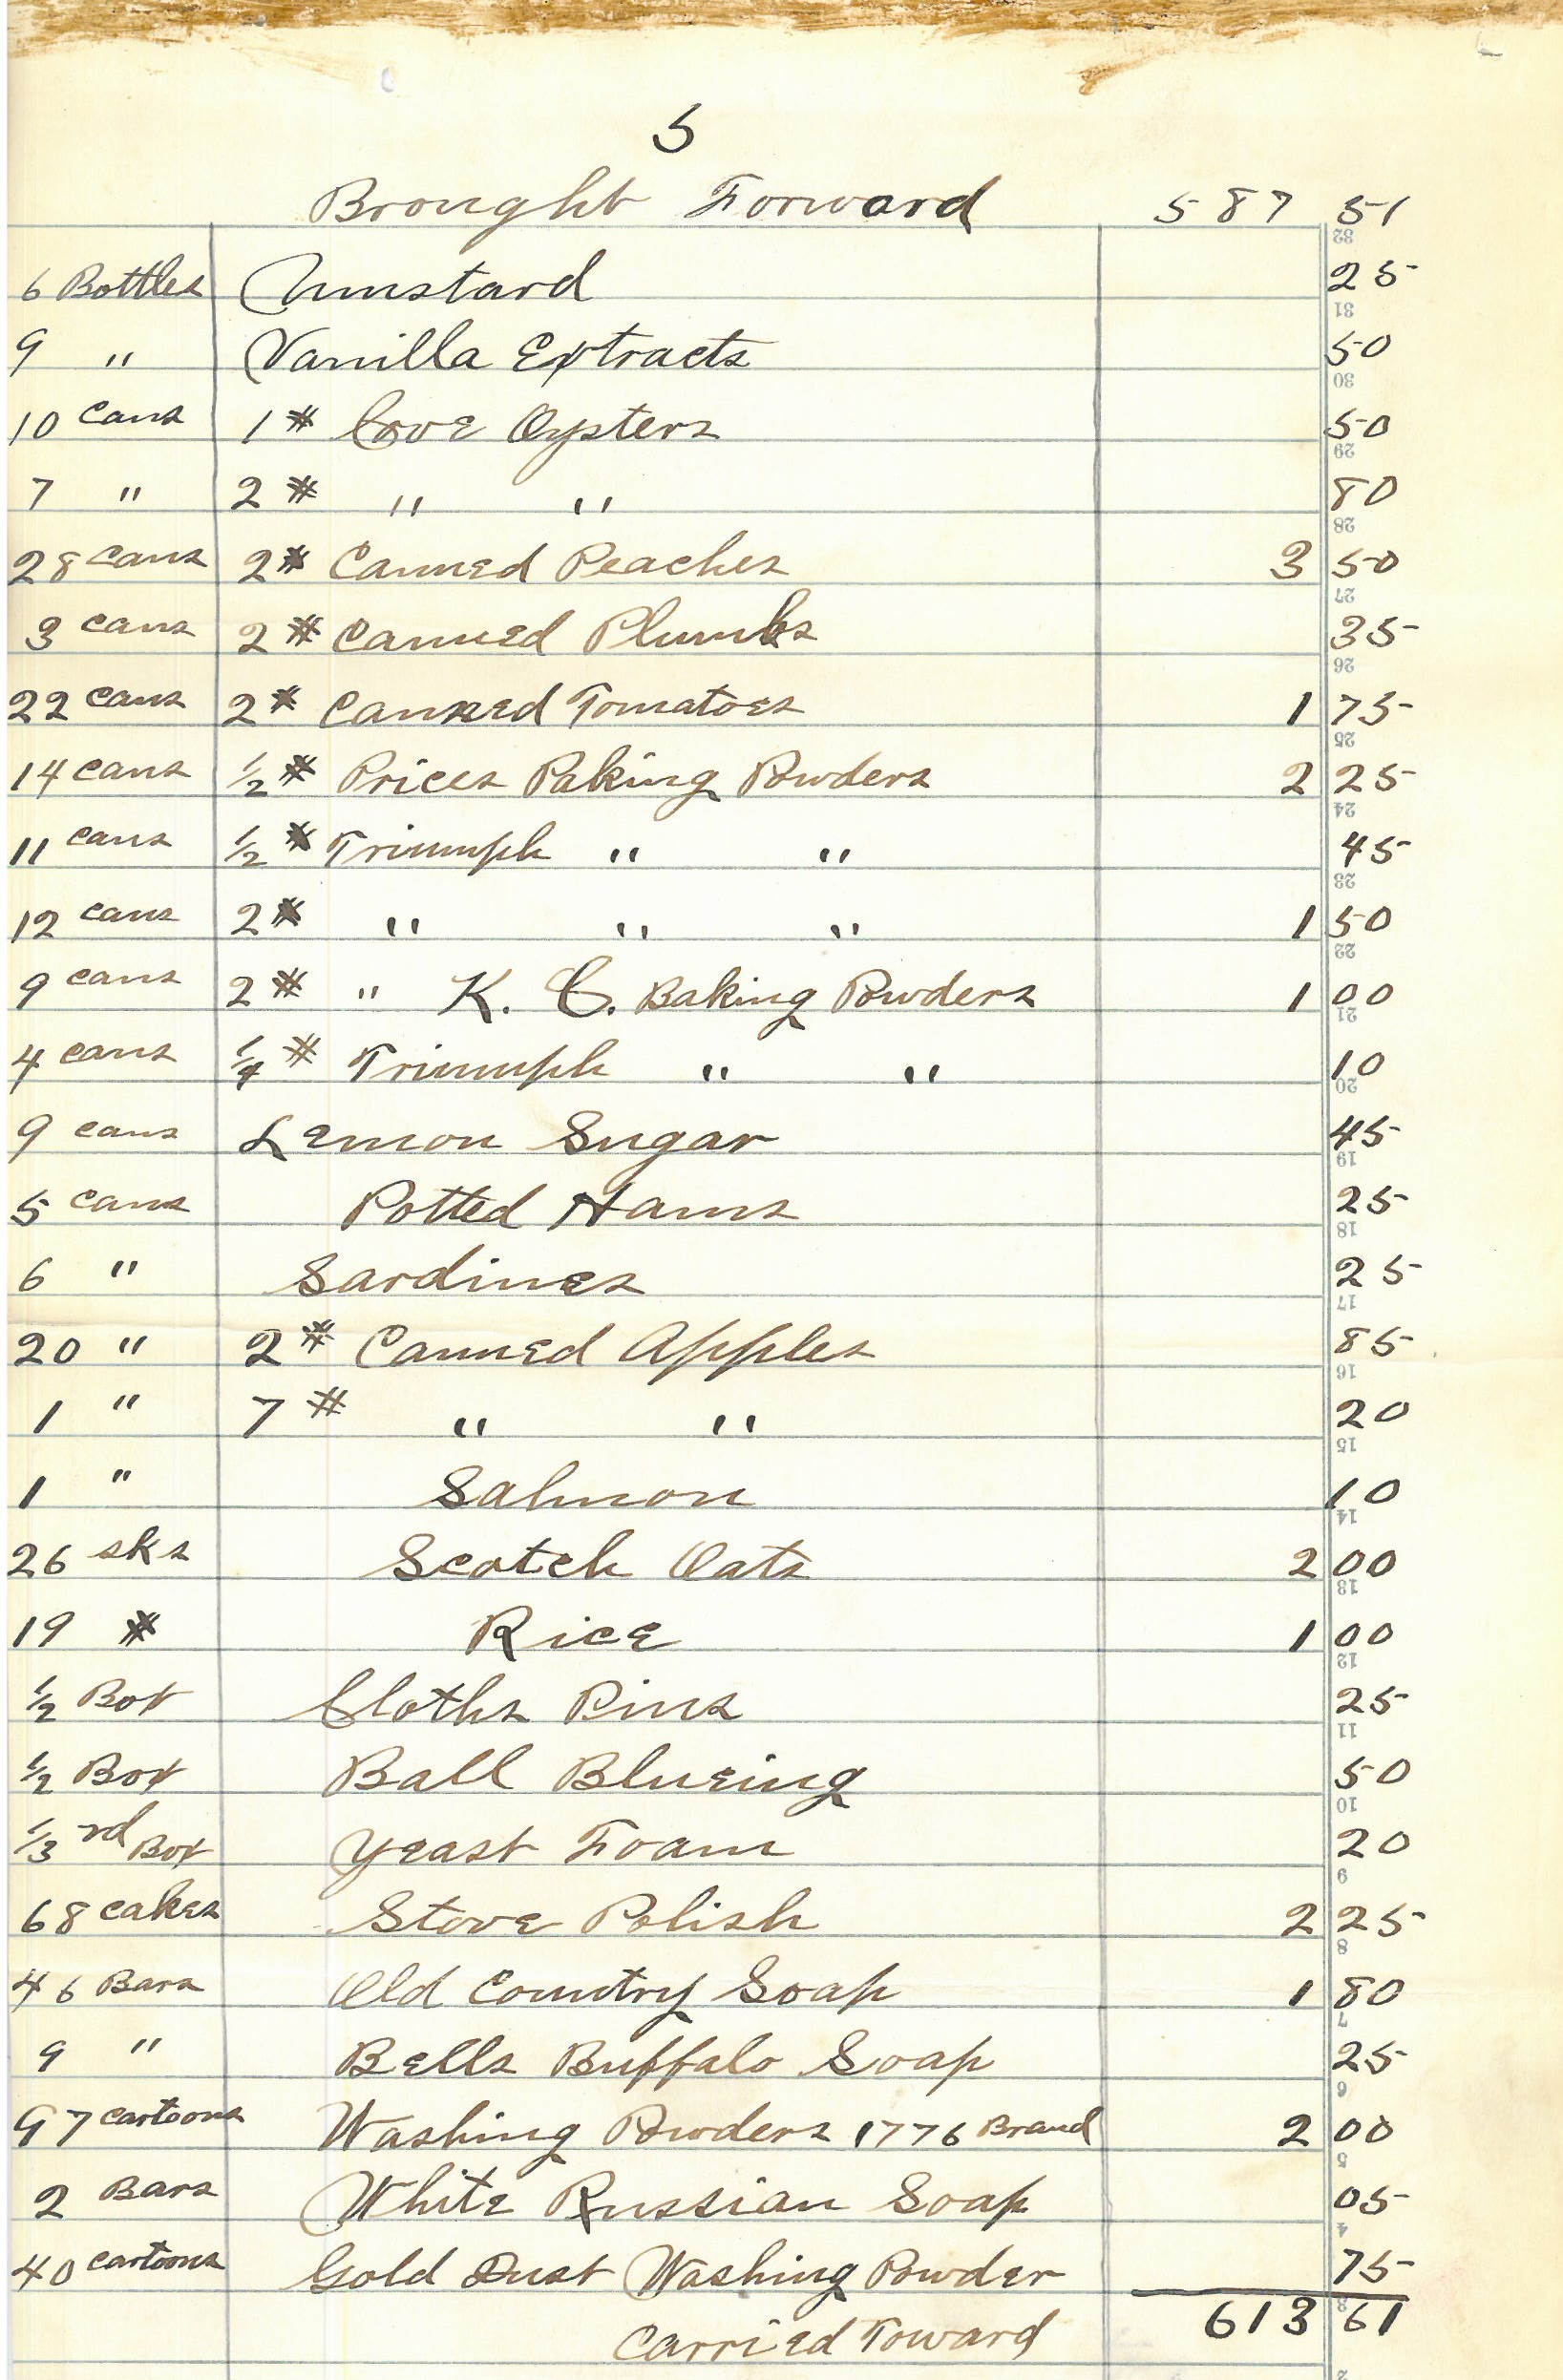 5
Brought Forward 587 51
6 Bottles Mustard 25
9 " Vanilla Extracts 50
10 cans 1# Cove Oysters 50
7 " 2# " " 80
28 cans 2# Canned Peaches 3 50
3 cans 2# Canned Plumbs 35
22 cans 2# Canned Tomatoes 1 75
14 cans 1/2# Prices Baking Powders 2 25
11 cans 1/2# Triumph " " 45
12 cans 2# " " " 1 50
9 cans 2# " K. C. Baking Powders 1 00
4 cans 1/4# Triumph " " 10
9 cans Lemon Sugar 45
5 cans Potted Hams 25
6 " Sardines 25
20 " 2# Canned Apples 85
1 " 7# " " 20
1 " Salmon 10
26 sks Scotch Oats 2 00
19 # Rice 1 00
1/2 Box Cloths Pins 25
1/2 Box Ball Blueing 50
1/3rd Box Yeast Foam 20
68 cakes Stove Polish 2 25
46 Bars Old Country Soap 1 80
9 " Bells Buffalo Soap 25
97 cartoons Washing Powders 1776 Brand 2 00
2 Bars White Russian Soap 05
40 cartoons Gold Dust Washing Powder 75
Carried Toward 613 61